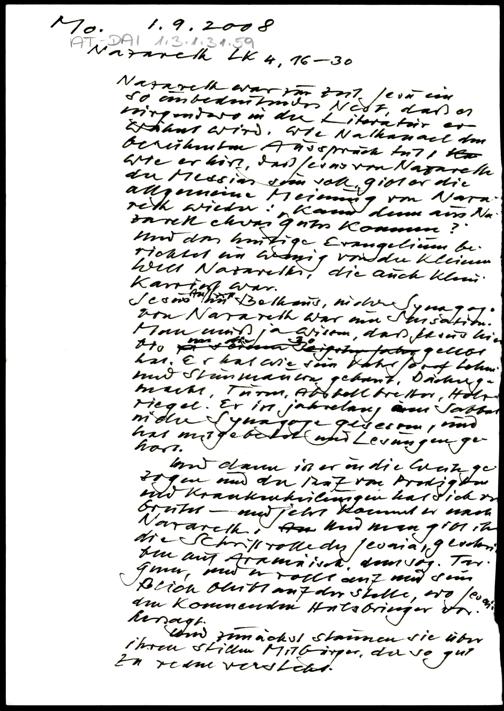 Mo. 1.9.2008
AT-DAI 1.3.1.31.59
Nazareth LK 4, 16-30
Nazareth war zur Zeit Jesu ein
so unbedeutendes Nest, daß es
nirgendwo in der Literatur er-
wähnt wird. Wie Nathanael den
berühmten Ausspruch tut,
wie er hört, daß Jesus von Nazareth
der Messias sein soll, gibt er die
allgemeine Meinung von Naza-
reth wieder: "Kann denn aus Na-
zareth etwas Gutes kommen?"
Und das heutige Evangelium be-
richtet ein wenig von der kleinen
Welt Nazareths, die auch klein
Karriert war.
Jesus Auftritt im Bethaus, in der Synagoge
von Nazareth war eine Sensation.
Man muß ja wissen, daß Jesus hier
bis 30 gelebt
hat. Er hat wie sein Vater Josef Lehm
und Steinmauern gebaut, Dächer ge-
macht, Türen, Holz-
riegel. Er ist jahrelang am Sabbat
in der Synagoge gesessen, und
hat mitgebetet und Lesungen ge-
hört.
Und dann ist er in die Weite ge-
zogen und der Ruf von Predigten
und Krankenheilungen hat sich ver-
breitet - und jetzt kommt er nach
Nazareth. Und man gibt ihm
die Schriftrolle des Jesaia, geschrie-
ben auf Aramäisch, dem sog. Tar-
gum, und er rollt auf und sein
Blick bleibt auf der Stelle, wo Jesaia
den kommenden Heilsbringer vor-
hersagt.
Und zunächst staunen sie über
ihren stillen Mitbürger, der so gut
zu reden versteht.